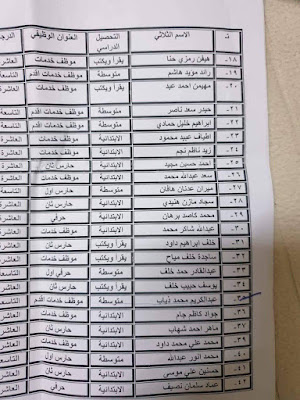 ت الاسم الثلاثي التحصيل الدراسي العنوان الوظيفي الدرجة
١٨- هيفن رمزي حنا يقرأ ويكتب موظف خدمات العاشرة
١٩- رائد مؤيد هاشم متوسطة موظف خدمات اقدم التاسعة
٢٠- مهيمن احمد عبد يقرأ ويكتب موظف خدمات العاشرة
٢١- حيدر سعد ناصر متوسطة موظف خدمات اقدم التاسعة
٢٢- ابراهيم خليل حمادي الابتدائية موظف خدمات العاشرة
٢٣- اطياف عبيد محمود الابتدائية موظف خدمات العاشرة
٢٤- زيد ناظم نجم الابتدائية موظف خدمات العاشرة
٢٥- احمد حسين مجيد الابتدائية حارس ثان العاشرة
٢٦- سعد عبدالله محمد الابتدائية موظف خدمات العاشرة
٢٧- ميران عدنان متوسطة حارس اول التاسعة
٢٨- سجاد مازن هنيدي الابتدائية موظف خدمات العاشرة
٢٩- محمد كاصد برهان الابتدائية حرفي العاشرة
٣٠- عبدالله شاكر محمد الابتدائية موظف خدمات العاشرة
٣١- خلف ابراهيم داود يقرأ ويكتب حارس ثان العاشرة
٣٢- ساجدة خلف مياح يقرأ ويكتب موظف خدمات العاشرة
٣٣- عبدالقادر حمد خلف متوسطة حرفي اول التاسعة
٣٤- يوسف حبيب خلف يقرأ ويكتب موظف خدمات العاشرة
٣٥- عبدالكريم محمد ذياب متوسطة موظف خدمات اقدم التاسعة
٣٦- جواد كاظم جام الابتدائية موظف خدمات العاشرة
٣٧- ماهر احمد شهاب الابتدائية حارس ثان العاشرة
٣٩- محمد علي محمد داود الابتدائية موظف خدمات العاشرة
٤٠- محمد انور عبدالله متوسطة حارس اول التاسعة
٤١- حسنين علي موسى الابتدائية حارس ثان العاشرة
٤٢- عماد سلمان نصيف الابتدائية حرفي العاشرة